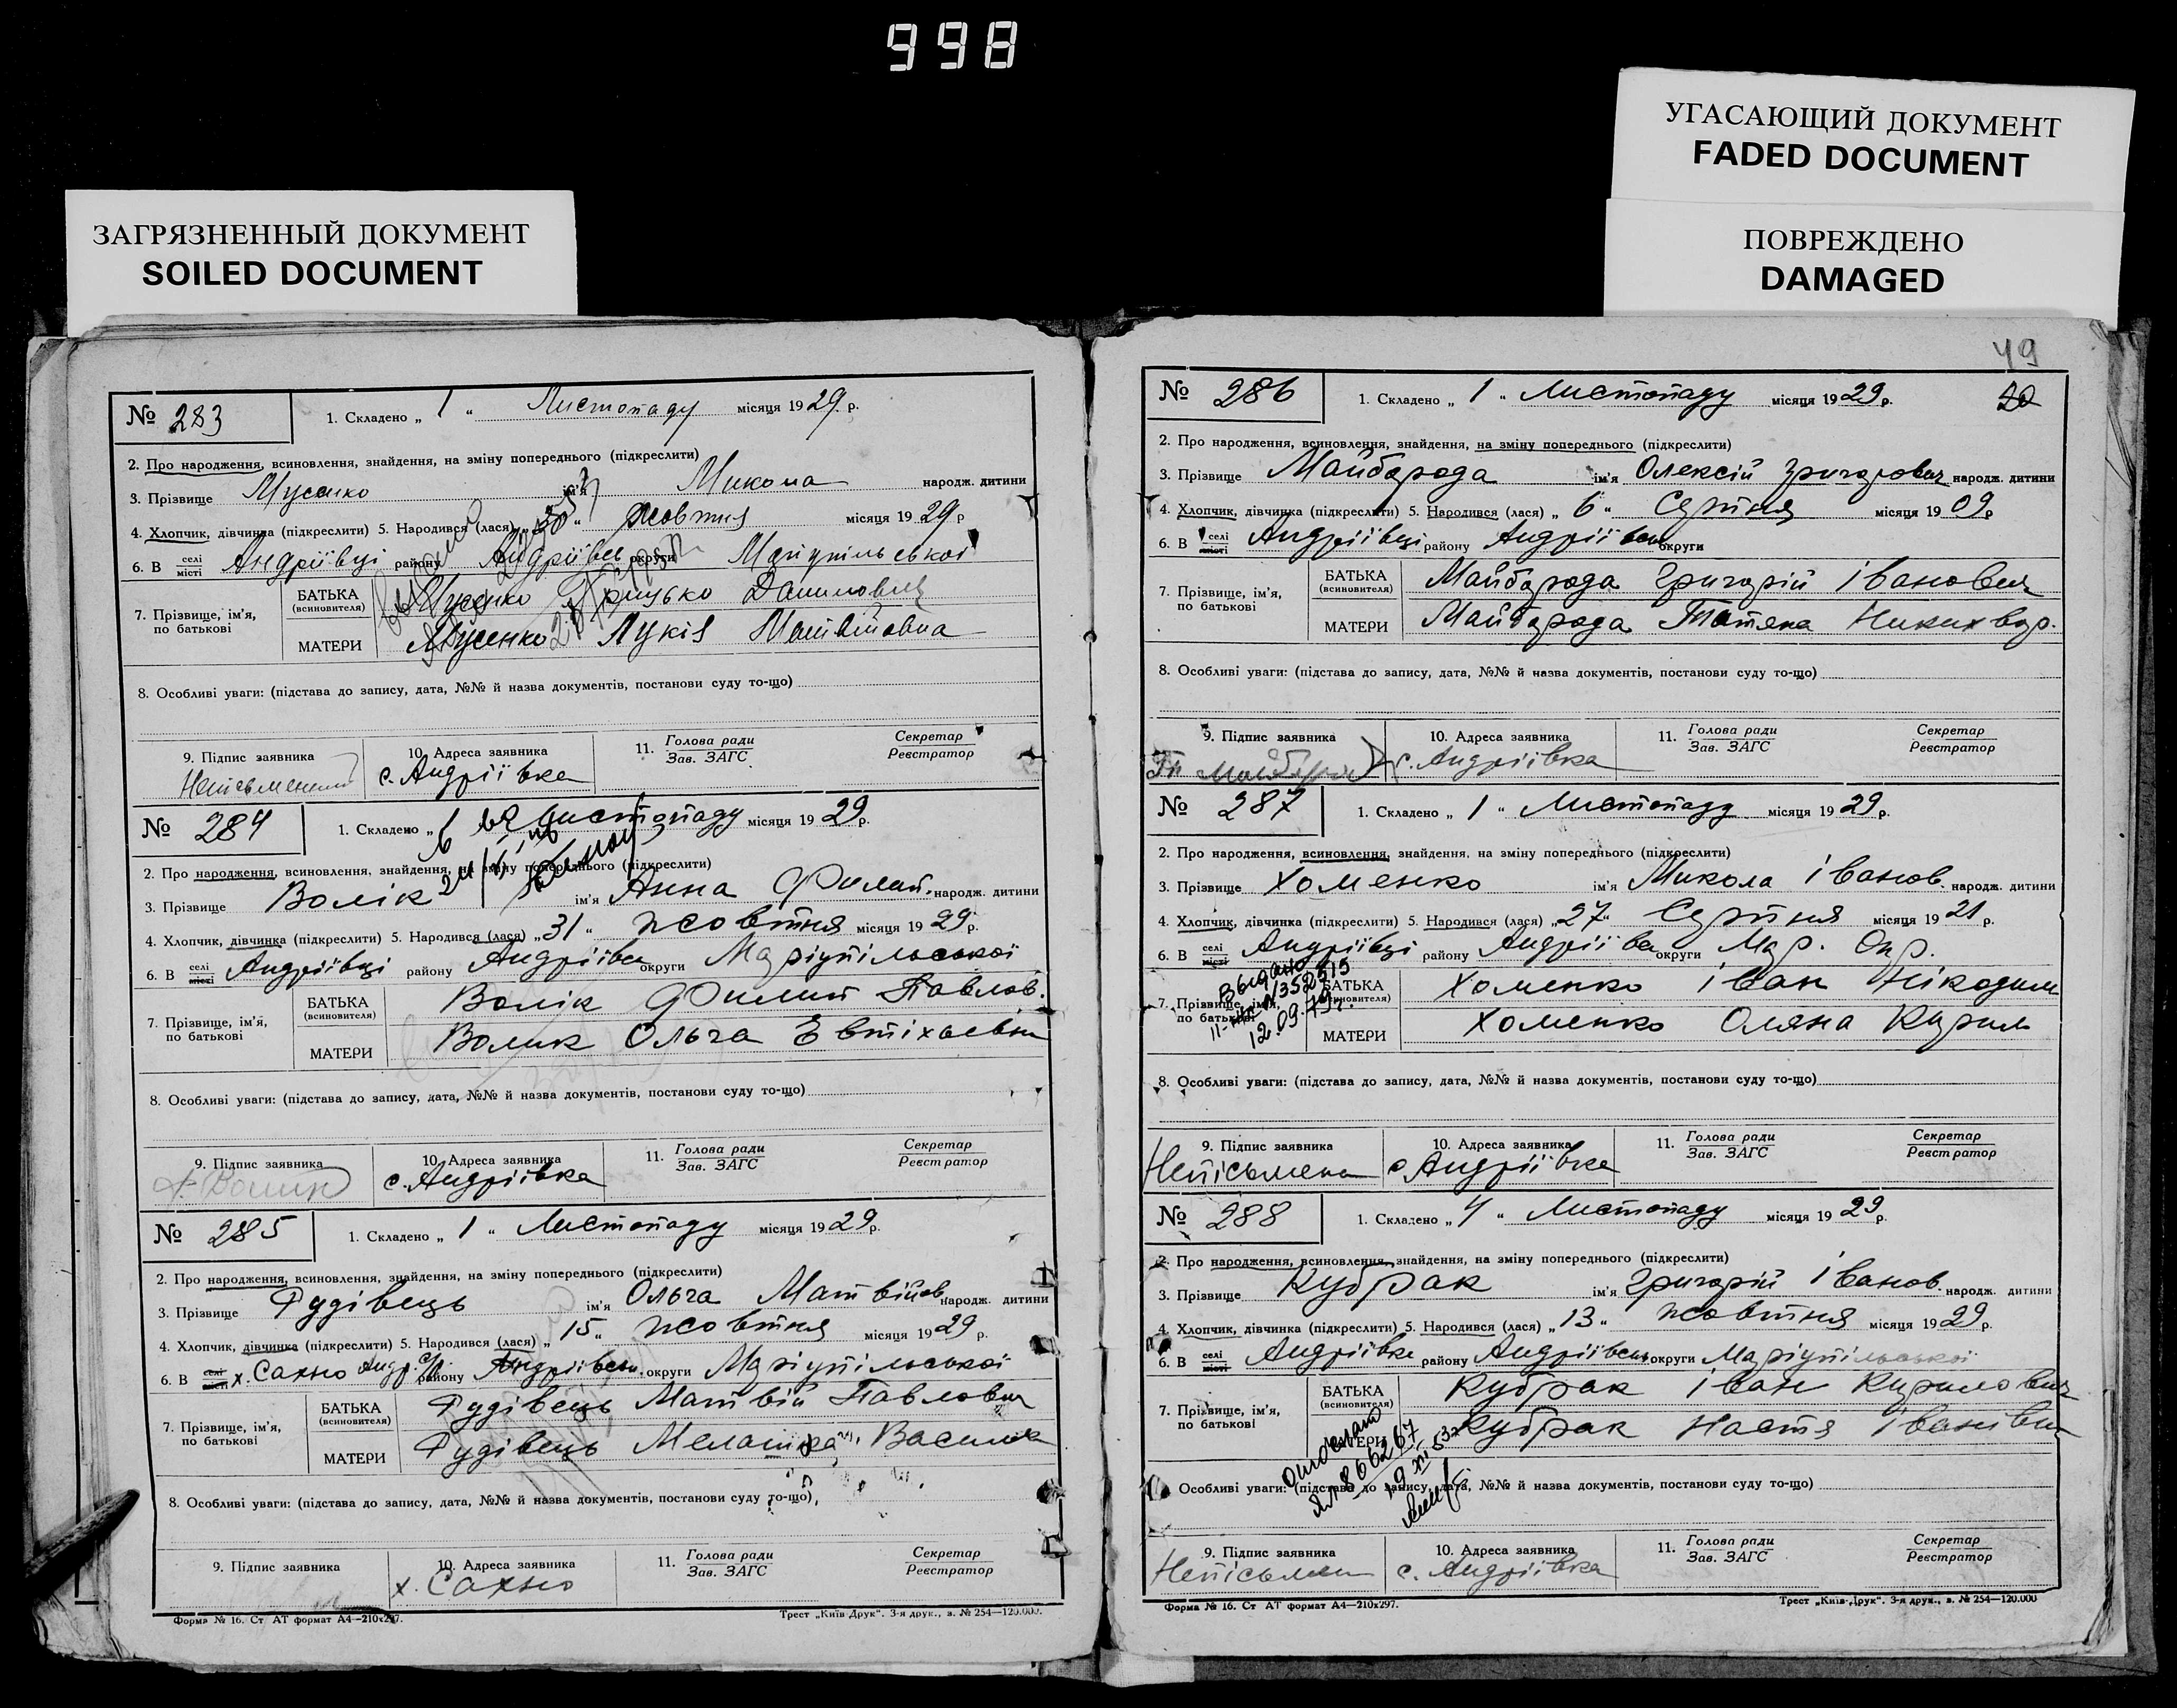 998
УГАСАЮЩИЙ ДОКУМЕНТ
FADED DOCUMENT
ЗАГРЯЗНЕННЫЙ ДОКУМЕНТ
SOILED DOCUMENT
ПОВРЕЖДЕНО
DAMAGED
№ 283
1. Складено „ 1 “ Листопаду місяця 1929 р.
2. Про народження, всиновлення, знайдення, на зміну попереднього (підкреслити)
3. Прізвище Мусенко ім'я Микола народж. дитини
4. Хлопчик, дівчинка (підкреслити) 5. Народився (лася) „30“ жовтня місяця 1929 р
6. В селі місті Андріївці району Андріївсь округи Маріупільської
7. Прізвище, ім'я, по батькові
БАТЬКА (всиновителя) Мусенко Грицько Данилович
МАТЕРИ Мусенко Лукія Матвіовна
8. Особливі уваги: (підстава до запису, дата, №№ й назва документів, постанови суду то-що)
9. Підпис заявника
10. Адреса заявника
11. Голова ради Зав. ЗАГС
Секретар Реєстратор
Неписьменний с. Андріївка
№ 284
1. Складено „ 1 “ Листопаду місяця 1929 р.
2. Про народження, всиновлення, знайдення, на зміну попереднього (підкреслити)
3. Прізвище Волік ім'я Анна Филип. народж. дитини
4. Хлопчик, дівчинка (підкреслити) 5. Народився (лася) „31“ жовтня місяця 1929 р.
6. В селі місті Андріївці району Андріївсь округи Маріупільської
7. Прізвище, ім'я, по батькові
БАТЬКА (всиновителя) Волік Филип Павлов.
МАТЕРИ Волик Ольга Евтіхаевна
8. Особливі уваги: (підстава до запису, дата, №№ й назва документів, постанови суду то-що)
9. Підпис заявника
10. Адреса заявника
11. Голова ради Зав. ЗАГС
Секретар Реєстратор
Волик с. Андріївка
№ 285
1. Складено „ 1 “ Листопаду місяця 1929 р.
2. Про народження, всиновлення, знайдення, на зміну попереднього (підкреслити)
3. Прізвище Рудівець ім'я Ольга Матвійов народж. дитини
4. Хлопчик, дівчинка (підкреслити) 5. Народився (лася) „15“ жовтня місяця 1929 р.
6. В селі місті х. Сахно Андр. с/р. району Андріївськ. округи Маріупільської
7. Прізвище, ім'я, по батькові
БАТЬКА (всиновителя) Рудівець Матвій Павлович
МАТЕРИ Рудівець Мелашка Василів
8. Особливі уваги: (підстава до запису, дата, №№ й назва документів, постанови суду то-що)
9. Підпис заявника
10. Адреса заявника
11. Голова ради Зав. ЗАГС
Секретар Реєстратор
х. Сахно
Форма № 16. Ст АТ формат А4—210х297.
Трест „Київ-Друк“. 3-я друк., з. № 254—120.000.
49
20
№ 286
1. Складено „ 1 “ Листопаду місяця 1929 р.
2. Про народження, всиновлення, знайдення, на зміну попереднього (підкреслити)
3. Прізвище Майборода ім'я Олексій Григорович народж. дитини
4. Хлопчик, дівчинка (підкреслити) 5. Народився (лася) „ 6 “ Серпня місяця 1909 р
6. В селі місті Андріївці району Андріївськ округи
7. Прізвище, ім'я, по батькові
БАТЬКА (всиновителя) Майборода Григорій Іванович
МАТЕРИ Майборода Татяна Никихвор.
8. Особливі уваги: (підстава до запису, дата, №№ й назва документів, постанови суду то-що)
9. Підпис заявника
10. Адреса заявника
11. Голова ради Зав. ЗАГС
Секретар Реєстратор
с. Андріївка
№ 287
1. Складено „ 1 “ Листопаду місяця 1929 р.
2. Про народження, всиновлення, знайдення, на зміну попереднього (підкреслити)
3. Прізвище Хоменко ім'я Микола Іванов. народж. дитини
4. Хлопчик, дівчинка (підкреслити) 5. Народився (лася) „27“ Серпня місяця 1921 р.
6. В селі місті Андріївці району Андріївсь округи Мар. Окр.
Выдано
12.09.79г.
7. Прізвище, ім'я, по батькові
БАТЬКА (всиновителя) Хоменко Іван Нікодим
МАТЕРИ Хоменко Оляна Кирил
8. Особливі уваги: (підстава до запису, дата, №№ й назва документів, постанови суду то-що)
9. Підпис заявника
10. Адреса заявника
11. Голова ради Зав. ЗАГС
Секретар Реєстратор
Непісьмена с. Андріївка
№ 288
1. Складено „ 4 “ Листопаду місяця 1929 р.
2. Про народження, всиновлення, знайдення, на зміну попереднього (підкреслити)
3. Прізвище Кубрак ім'я Григорій Іванов. народж. дитини
4. Хлопчик, дівчинка (підкреслити) 5. Народився (лася) „13“ жовтня місяця 1929 р.
6. В селі місті Андріївке району Андріївськ округи Маріупільської
7. Прізвище, ім'я, по батькові
БАТЬКА (всиновителя) Кубрак Іван Кирилович
МАТЕРИ Кубрак Настя Іванівна
8. Особливі уваги: (підстава до запису, дата, №№ й назва документів, постанови суду то-що)
9. Підпис заявника
10. Адреса заявника
11. Голова ради Зав. ЗАГС
Секретар Реєстратор
Непісьмен с. Андріївка
Форма № 16. Ст АТ формат А4—210х297.
Трест „Київ-Друк“. 3-я друк., з. № 254—120.000